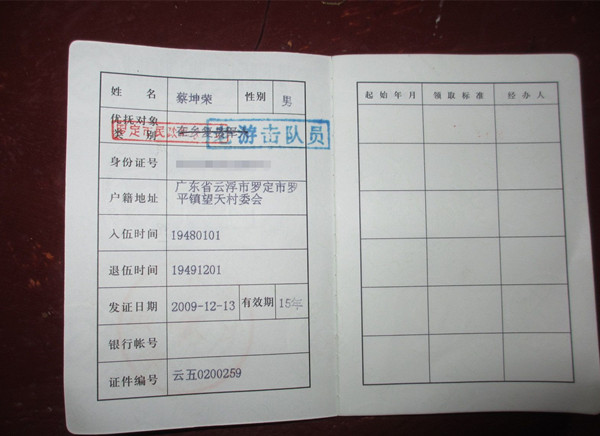 姓 名 蔡坤荣 性别 男
优抚对象
类 别 老游击队员
身份证号
户籍地址 广东省云浮市罗定市罗
平镇望天村委会
入伍时间 19480101
退伍时间 19491201
发证日期 2009-12-13 有效期 15年
银行帐号
证件编号 云五0200259
起始年月 领取标准 经办人